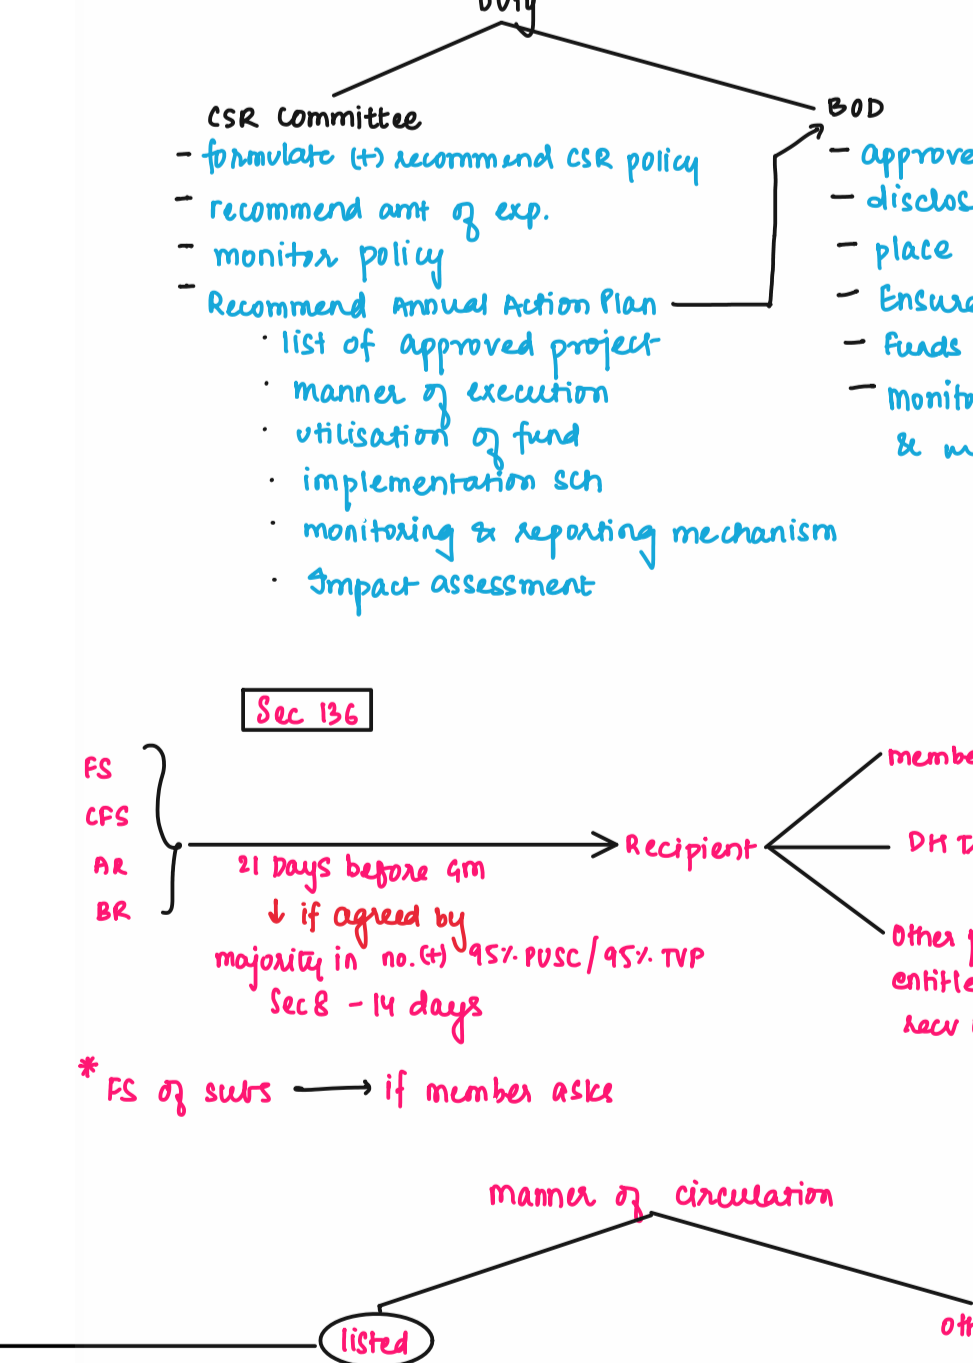 Duty
CSR Committee
- formulate (+) recommend CSR policy
- recommend amt of exp.
- monitor policy
- Recommend Annual Action Plan
· list of approved project
· manner of execution
· utilisation of fund
· implementation sch
· monitoring & reporting mechanism
· Impact assessment
BOD
- approve
- disclos
- place
- Ensure
- Funds
- Monito
& m
Sec 136
FS
CFS
AR
BR
21 Days before GM
↓ if agreed by
majority in no. (+) 95% PUSC / 95% TVP
Sec 8 - 14 days
Recipient
membe
DH T
Other p
entitle
recv
* FS of subs → if member asks
Manner of circulation
listed
oth